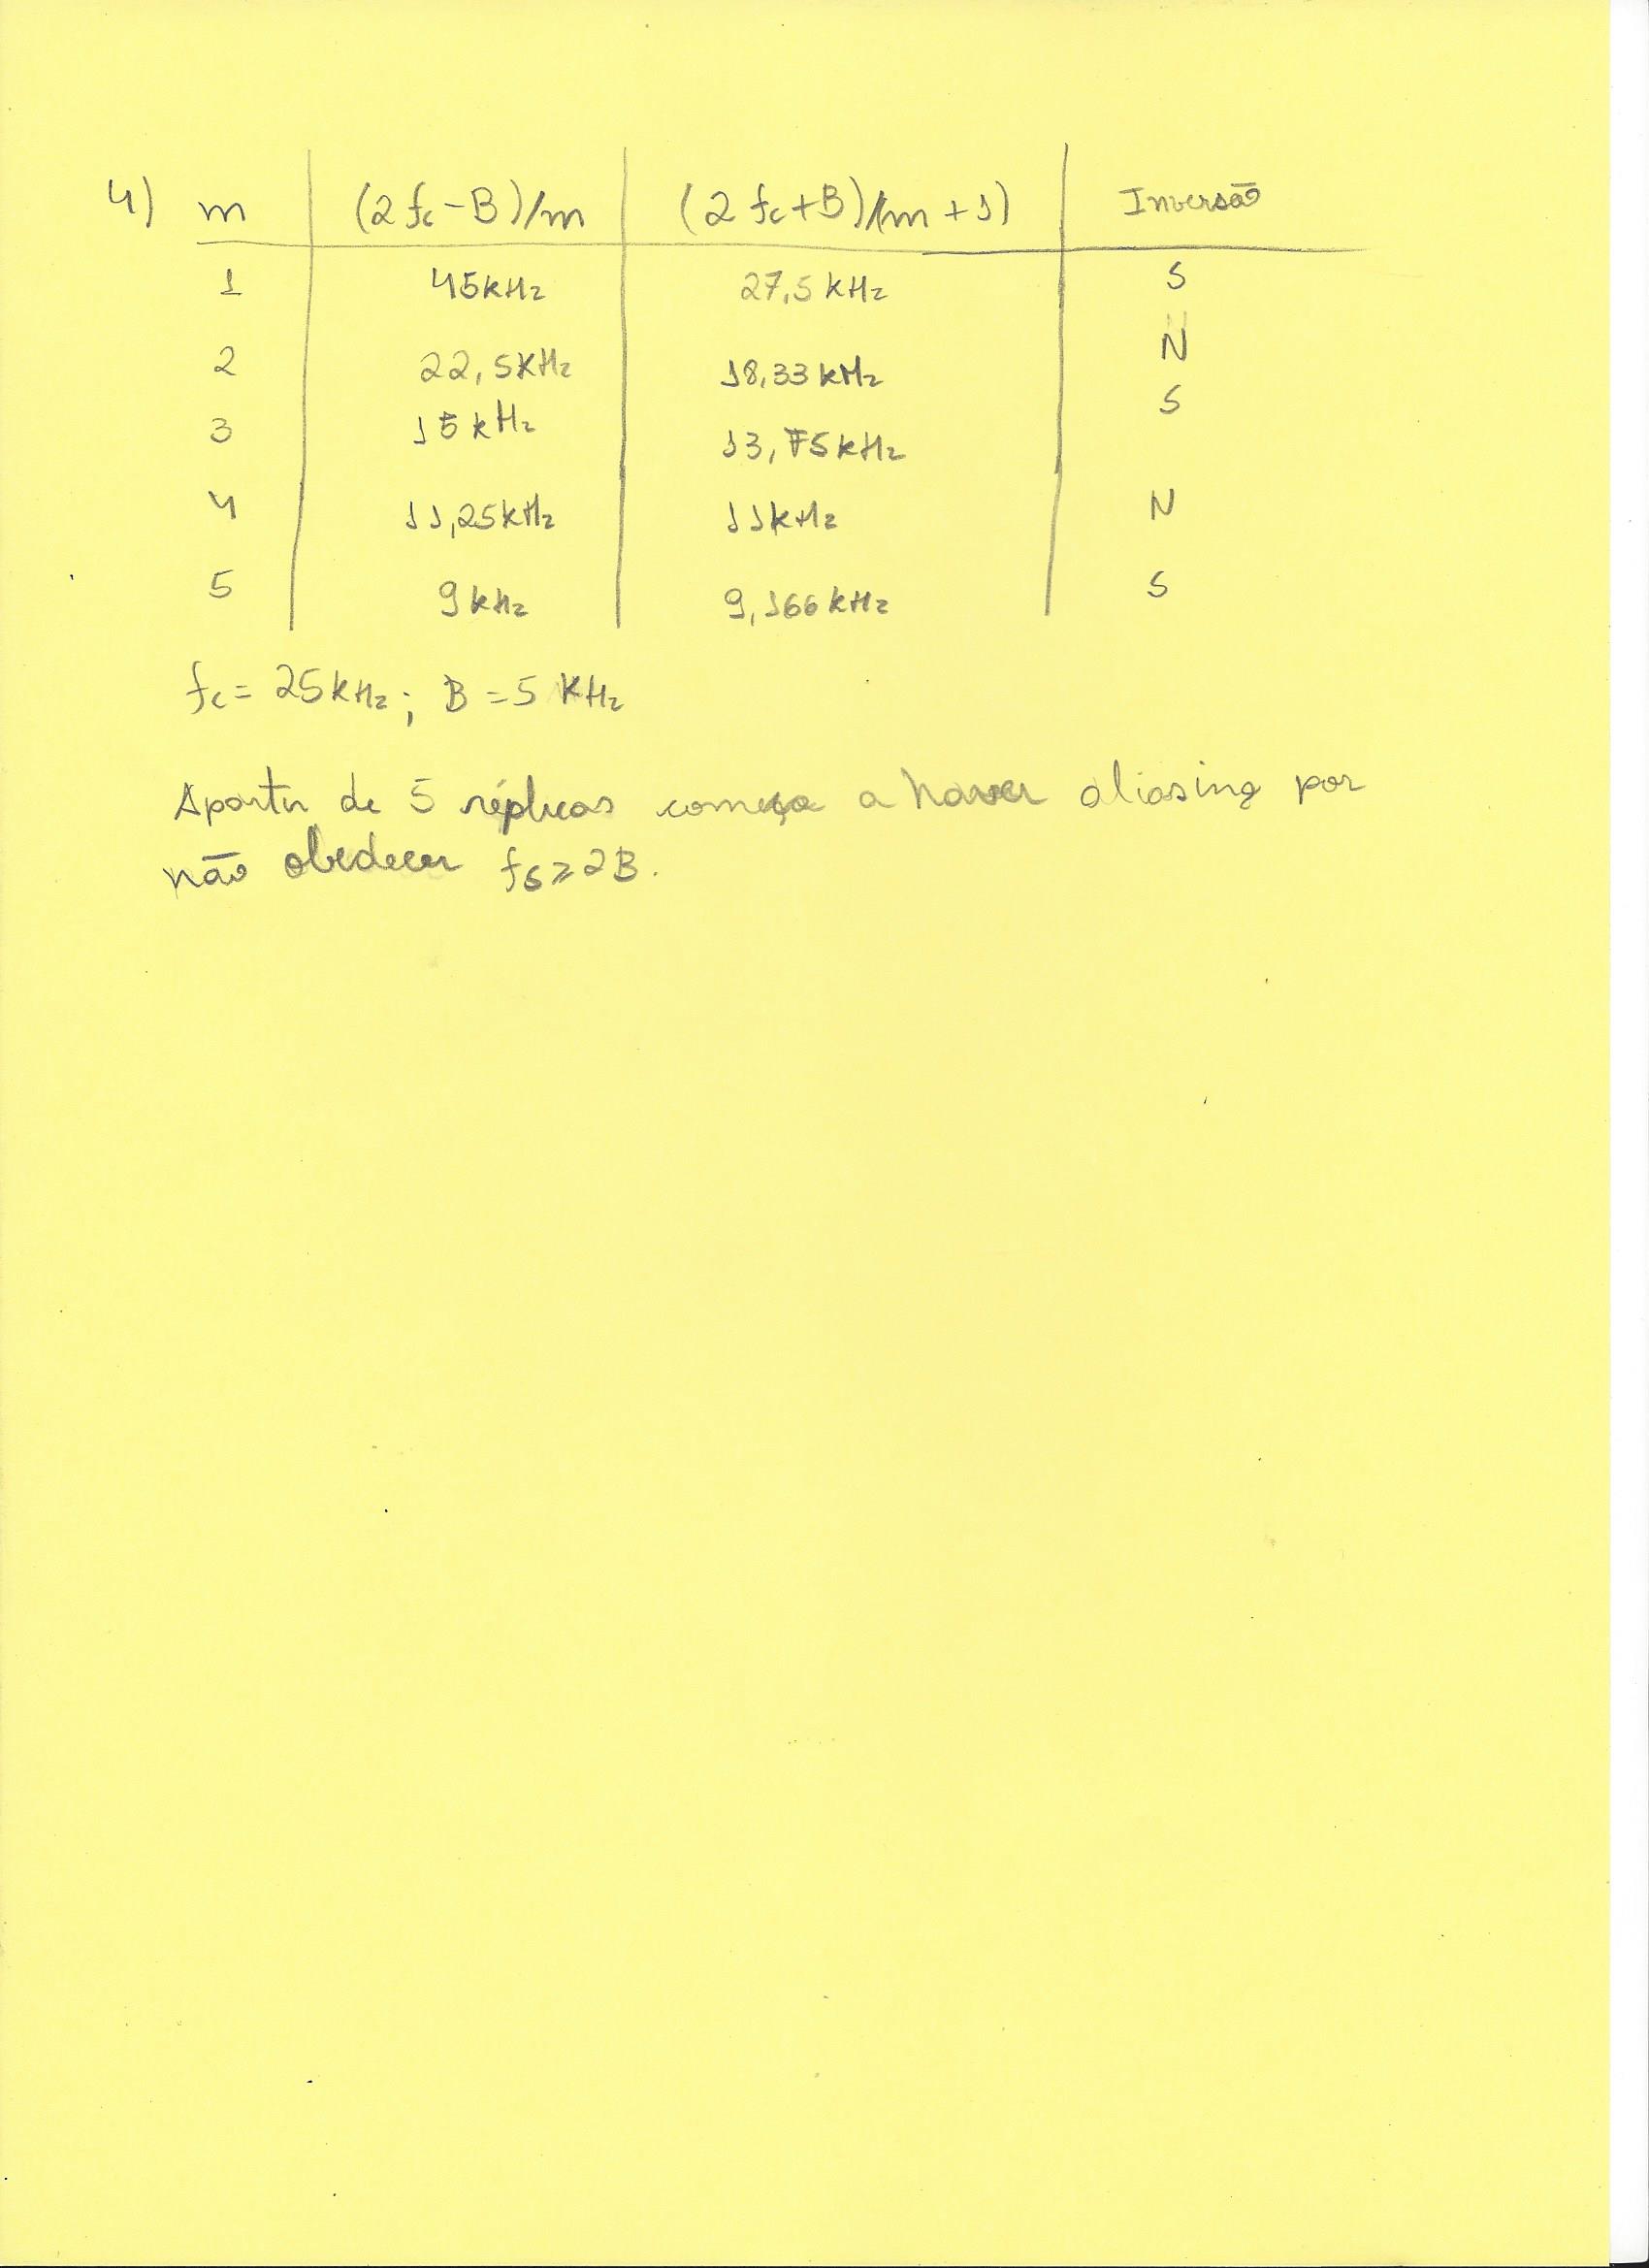 4) m (2fc-B)/m (2fc+B)/(m+1) Inversão
1 45kHz 27,5 kHz S
2 22,5KHz 18,33 kHz N
3 15 kHz 13,75kHz S
4 11,25kHz 11kHz N
5 9kHz 9,166kHz S
fc = 25kHz; B = 5 KHz
Apartir de 5 réplicas começa a haver aliasing por
não obedecer fs ≥ 2B.